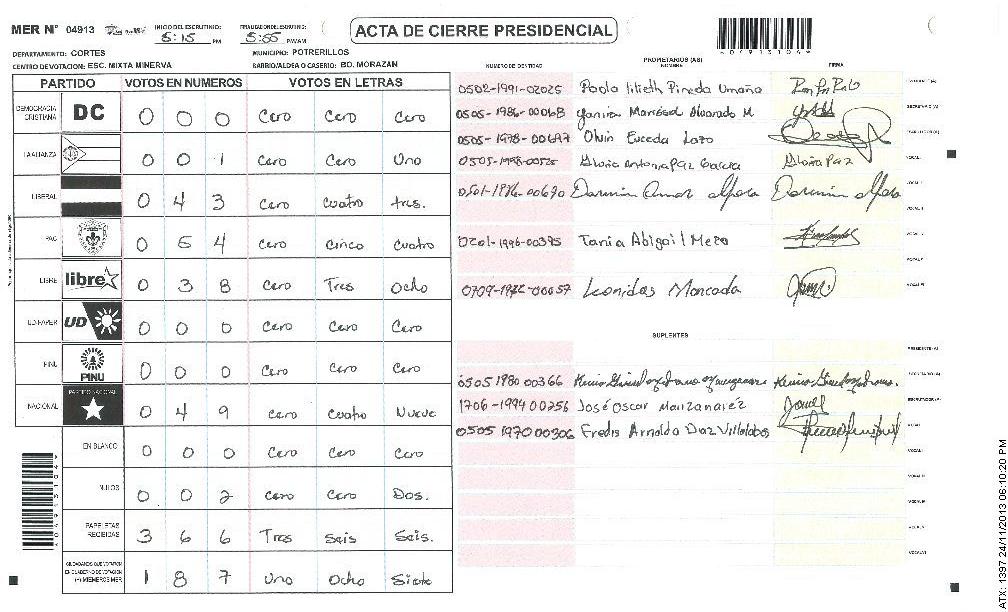 MER N° 04913 INICIO DEL ESCRUTINIO: 5:15 PM FINALIZACION DEL ESCRUTINIO: 5:55 PM/AM
ACTA DE CIERRE PRESIDENCIAL
DEPARTAMENTO: CORTES MUNICIPIO: POTRERILLOS
CENTRO DE VOTACION: ESC. MIXTA MINERVA BARRIO/ALDEA O CASERIO: BO. MORAZAN
PARTIDO VOTOS EN NUMEROS VOTOS EN LETRAS
DEMOCRACIA CRISTIANA DC 0 0 0 Cero Cero Cero
LA ALIANZA 0 0 1 Cero Cero Uno
LIBERAL 0 4 3 Cero Cuatro tres.
PAC 0 5 4 Cero Cinco Cuatro
LIBRE libre 0 3 8 Cero Tres Ocho
UD-FAPER UD 0 0 0 Cero Cero Cero
PINU PINU 0 0 0 Cero Cero Cero
NACIONAL PARTIDO NACIONAL 0 4 9 Cero Cuatro Nueve
EN BLANCO 0 0 0 Cero Cero Cero
NULOS 0 0 2 Cero Cero Dos.
PAPELETAS RECIBIDAS 3 6 6 Tres Seis Seis.
CIUDADANOS QUE VOTARON EN CUADERNO DE VOTACION (+) MIEMBROS MER 1 8 7 Uno Ocho Siete
04913104
PROPIETARIOS (AS)
NUMERO DE IDENTIDAD NOMBRE FIRMA
0502-1991-02025 Paola lilieth Pineda Umaña
0505-1986-00068 Yanira Marisol Alvarado M
0505-1978-00697 Olvin Euceda Lazo
0505-1998-00525 Gloria Antonia Paz Garcia Gloria Paz
Darwin Omar
0201-1996-00395 Tania Abigail Meza
Leonidas Moncada
SUPLENTES
0505 1980 00366
1706-1994 00256 José Oscar Manzanarez
0505 1970 00306 Fredis Arnaldo Diaz Villalobos
ATX: 1397 24/11/2013 06:10:20 PM